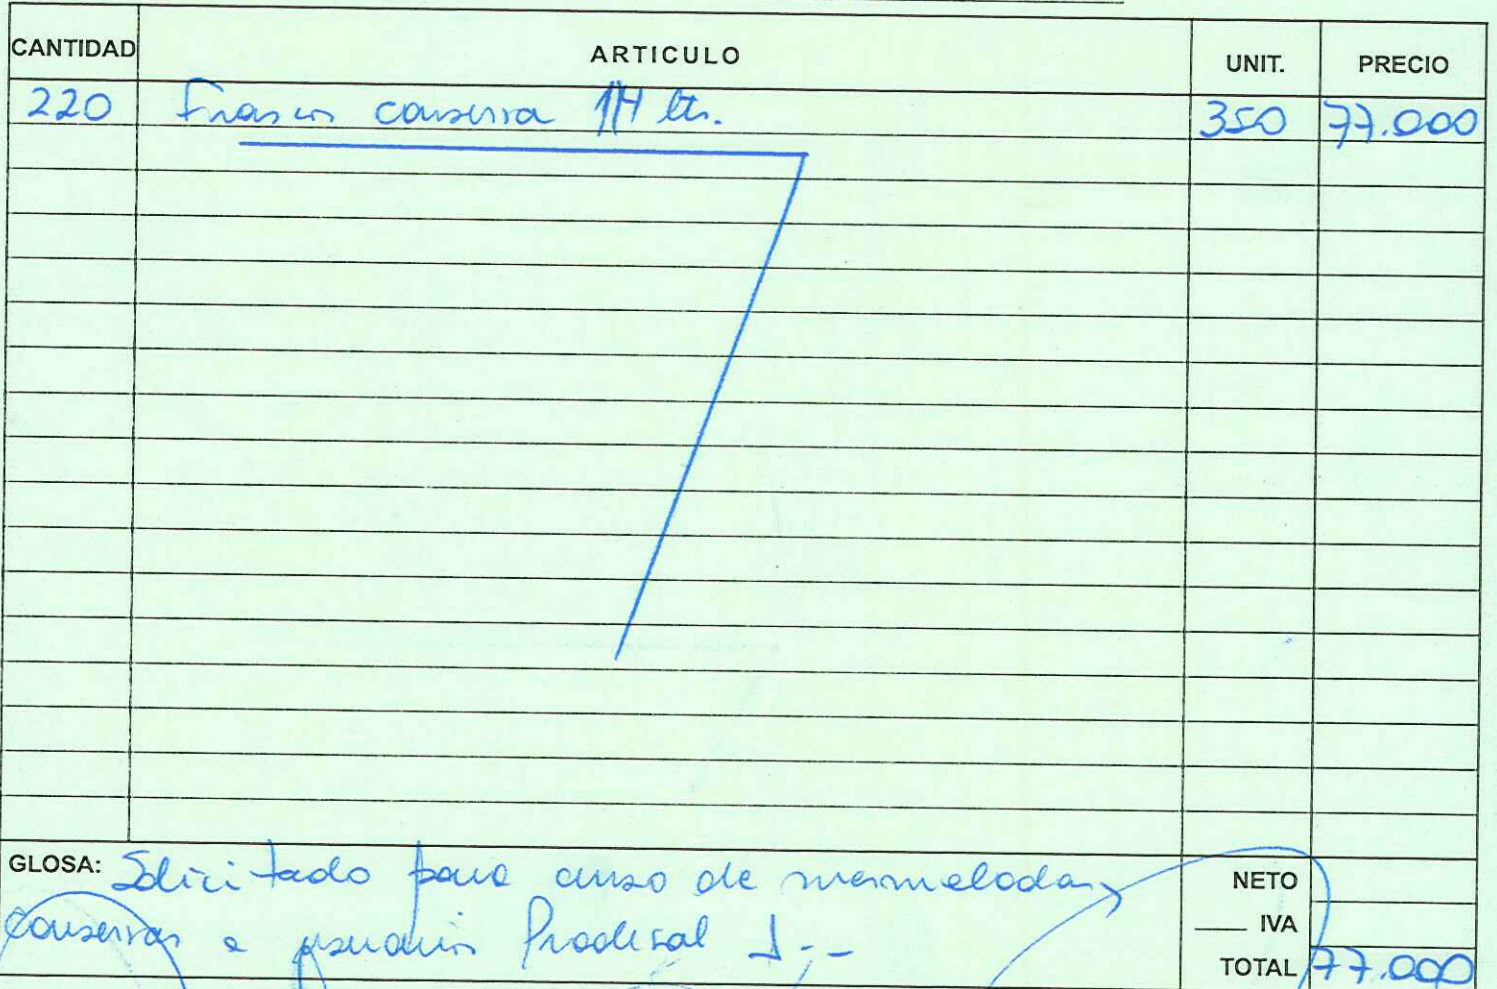 CANTIDAD ARTICULO UNIT. PRECIO
220 Frascos conserva 1/4 lts. 350 77.000
GLOSA: Solicitado para curso de mermeladas y NETO
conservas a usuarios Prodesal I.- IVA
TOTAL 77.000